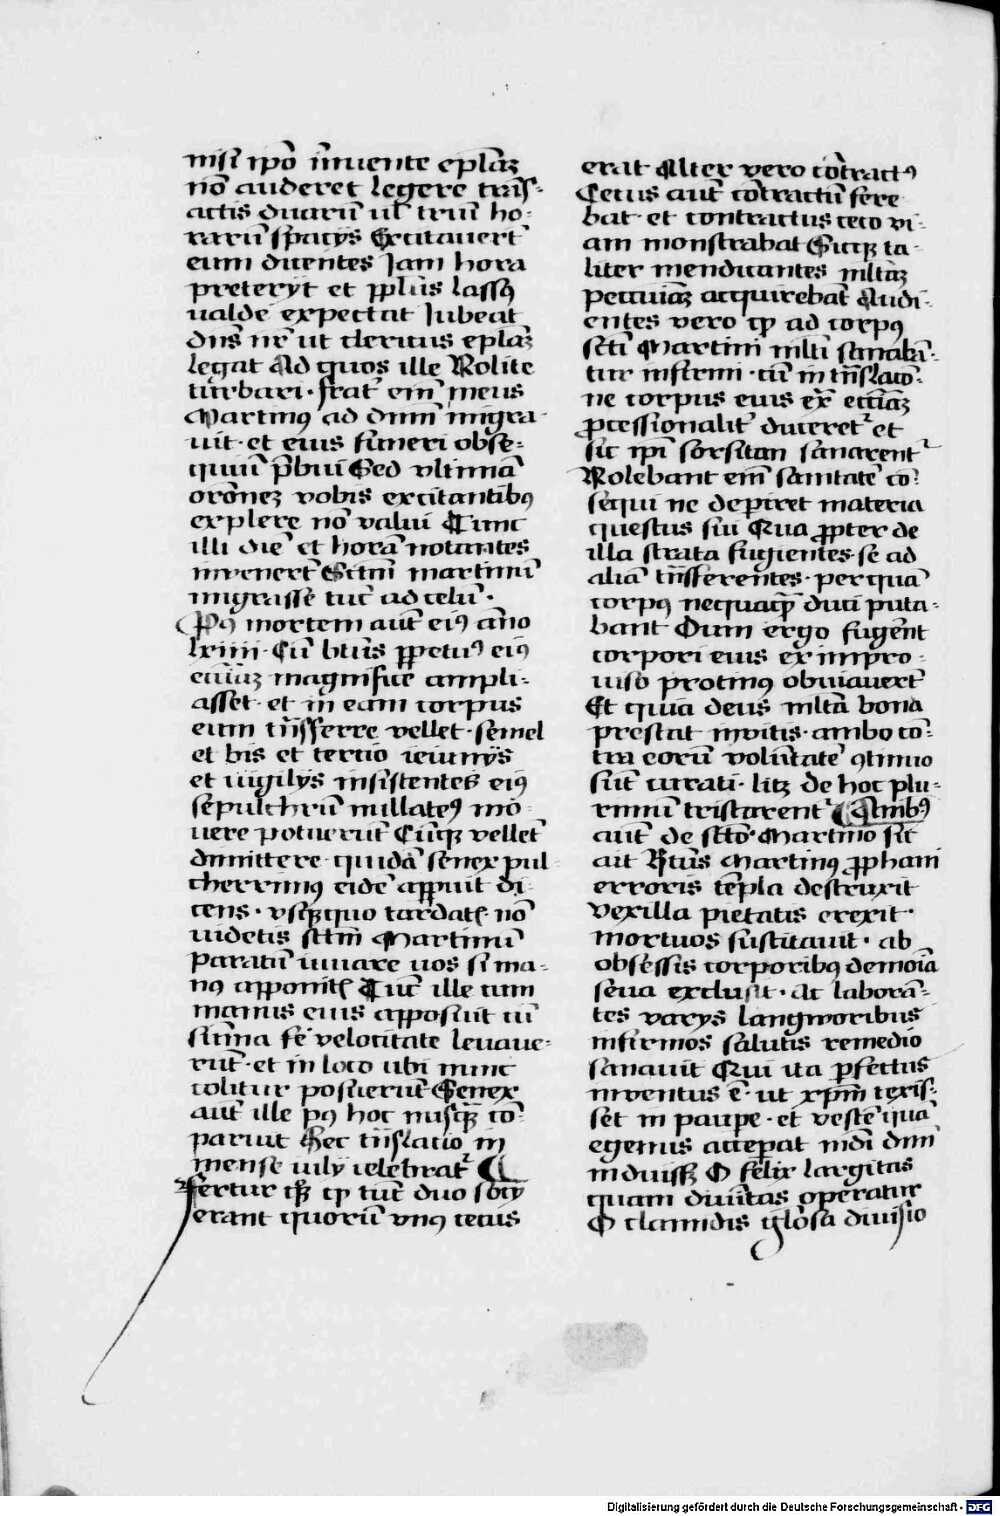 nisi ip̄o īnuente ep̄lāȝ
nō auderet legere trās-
actis duarū ul̄ triū ho-
rarū spacijs Excitauerūt
eum dicentes Iam hora
preterijt et pp̄lus lassꝰ
ualde expectat Iubeat
dn̄s nr̄ ut clericus ep̄lāȝ
legat Ad quos ille Nolite
turbari · frat̄ em̄ meus
Martinꝰ ad dnm̄ migra-
uit · et eius funeri obse-
quiū p̄bui Sed vltimā
orōneȝ vobis excitantibꝰ
explere nō valui Tunc
illi diē et horā notantes
inuenerūt Sctm̄ martinū
migrasse tūc ad celū ·
Pꝰ mortem aūt eiꝰ āno
lxiiii · Cū btūs ꝑpetuꝰ eiꝰ
eccīaȝ magnifice ampli-
asset · et in eam corpus
eum trāsferre vellet · semel
et bis et tertio ieiunijs
et uigilijs insistentes eiꝰ
sepulchrū nullatēꝰ mo-
uere potuerūt Cūqȝ vellēt
dimittere · quidā senex pul-
cherrimꝰ eidē appuit di-
cens · vsqȝquo tardat̄ · nō
uidetis sctm̄ Martinū
paratū iuuare uos si ma-
nꝰ apponit̄ Tūc ille cum
manus eius apposuit cū
sūma fē velocitate leuaue-
rūt · et in loco ubi nunc
colitur posuerūt Senex
aūt ille pꝰ hoc nusqȝ cō-
paruit Hec trāslatio in
mense iulij celebrat̄
fertur qȝ ꝙ tūc duo socij
erant quorū vnꝰ cecus
erat Alter vero cōtractꝰ
Cecus aūt cōtractū fere-
bat · et contractus ceco vi-
am monstrabat Sicqȝ ta-
liter mendicantes ml̄tāȝ
pecuniāȝ acquirebāt Audi-
entes vero ꝙ ad corpꝰ
scti Martini ml̄ti sanabā-
tur infirmi · cū in trāslatō-
ne corpus eius ex̄ eccīāȝ
ꝓcessionalit̄ duceret̄ et
sic ip̄i forsitan sanarent̄
Nolebant em̄ sanitatē cō-
sequi ne deꝑiret materia
questus sui Qua ꝓpter de
illa strata fugientes · se ad
aliā trāsferentes · per quā
corpꝰ nequaqȝ duci puta-
bant Dum ergo fugerēt
corpori eius ex impro-
uiso protinꝰ obuiauerūt
Et quia deus ml̄ta bona
prestat inuitis · ambo cō-
tra eorū volūtatē ꝯtinuo
sūt curati · licȝ de hoc plu-
rimū tristarent̄ Ambrꝰ
aūt de sctō · Martino sic
ait Btūs Martinꝰ ꝓphani
erroris tēpla destruxit
vexilla pietatis erexit ·
mortuos suscitauit · ab
obsessis corporibꝰ demoīa
seua exclusit · Ac laborā-
tes varijs langworibus
infirmos salutis remedio
sanauit Qui ita ꝑfectus
inuentus ē · ut xp̄m texis-
set in paupe · et vestē quā
egenus acceꝑat mdi dnm̄
induisset O felix largitas
quam diuītas operatur
O clamidis gl̄osa diuisio